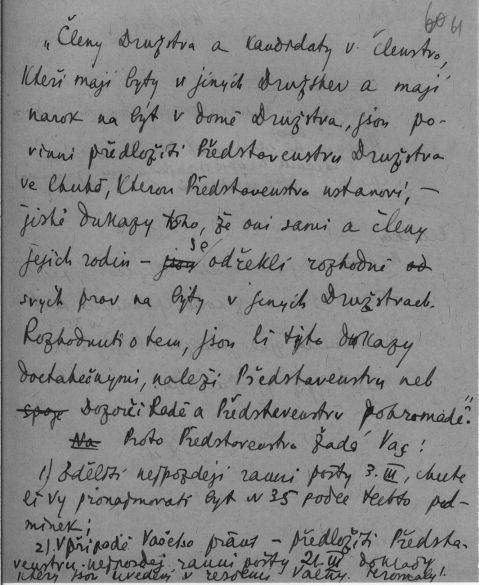 60 61
„Členy Družstva a kandidaty v. členstvo,
kteří mají byty v jiných Družstev a mají
narok na byt v domě Družstva, jsou po-
vinni předložiti Představenstvu Družstva
ve lhutě, kterou Představenstvo ustanoví, –
jisté dukazy toho, že oni sami a členy
jejich rodin – jsou se odřekli rozhodně od
svých prav na byty v jiných Družstvach.
Rozhodnuti o tem, jsou li tyto dukazy
dostatečnymi, naleží Představenstvu neb
spoje Dozorčí Radě a Představenstvu pohromadě."
Na Proto Představenstvo žadá Vas:
1) sděliti nejpozději ranní pošty 3. III, chcete
li Vy pronajmovati byt N 35 podle těchto pod-
minek;
2) V připadě Vašeho přání – předložiti Předsta-
venstvu nejpozdej. ranní pošty 21. III doklady,
ktery jsou uvedeny v resoluci Valny. Hromady!